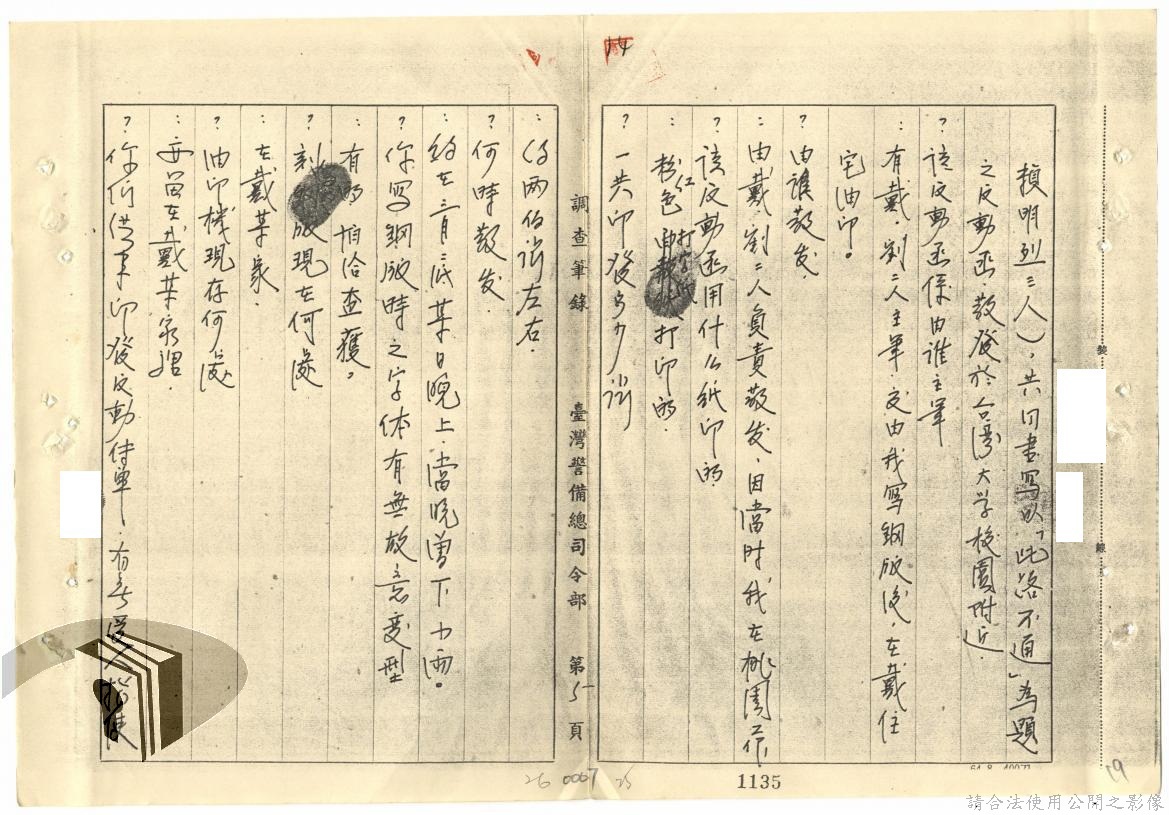 賴明烈三人），共同書寫以「此路不通」為題
之反動函，散發於台灣大学校園附近．
？該反動函係由谁主筆
：有戴．劉二人主筆交由我寫鋼版後，在戴住
宅油印。
？由誰散发
：由戴．劉二人負責散发，因當时我在桃園工作．
？該反動函用什么紙印的
：粉红色打字紙打印的．
？一共印發多少张
調查筆錄
臺灣警備總司令部
第5頁
：约兩佰张左右．
？何時散发
：约在二月底某日晚上，當晚曾下小雨。
？你寫鋼版時之字体有無故意变型
：有的，怕洽查獲。
？刻鋼版現在何處
：在戴某家．
？油印機現存何處
：亦留在戴某家裡．
？你们几年印發反動传單，有無受人指使
裝
線
14
26 0067 25
1135
19
請合法使用公開之影像